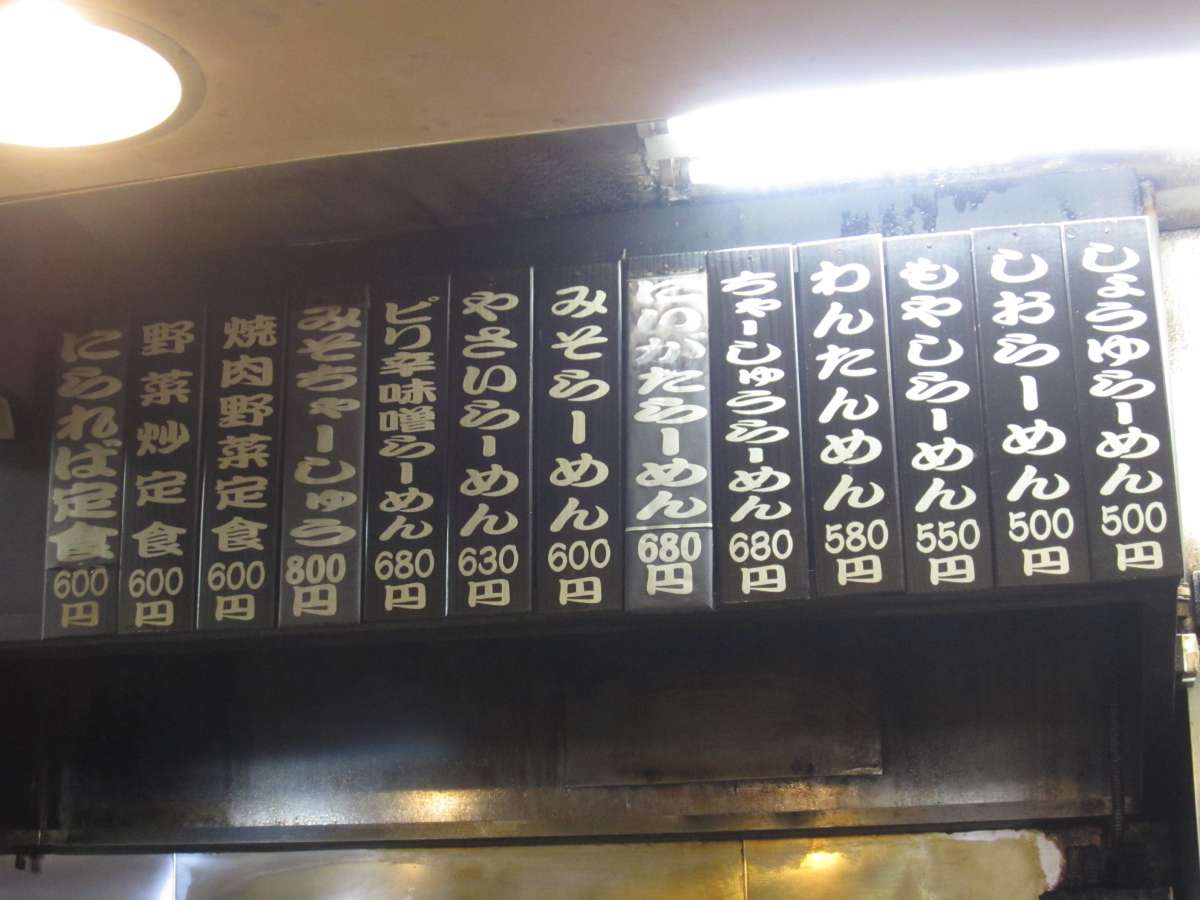 しょうゆらーめん 500円
しおらーめん 500円
もやしらーめん 550円
わんたんめん 580円
ちゃーしゅうらーめん 680円
にいがたらーめん 680円
みそらーめん 600円
やさいらーめん 630円
ピリ辛味噌らーめん 680円
みそちゃーしゅう 800円
焼肉野菜定食 600円
野菜炒定食 600円
にらればば定食 600円